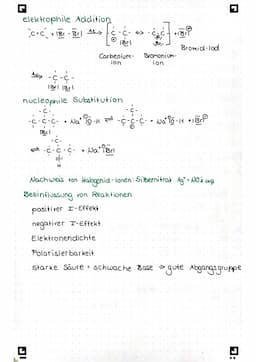 elektrophile Addition
C=C + |Br - Br|
|Br|
+ |Br|⊖
Carbenium-ion
Bromonium-ion
Bromid-Ion
|Br| |Br|
nucleophile Substitution
-C-C-C- + Na⁺
|Br|
⇌ -C-C-C- + Na⁺ |Br|
Nachweis von Halogenid-Ionen: Silbernitrat Ag⁺ + NO₃⁻
Beeinflussung von Reaktionen
positiver I-Effekt
negativer I-Effekt
Elektronendichte
Polarisierbarkeit
starke Säure + schwache Base → gute Abgangsgruppe